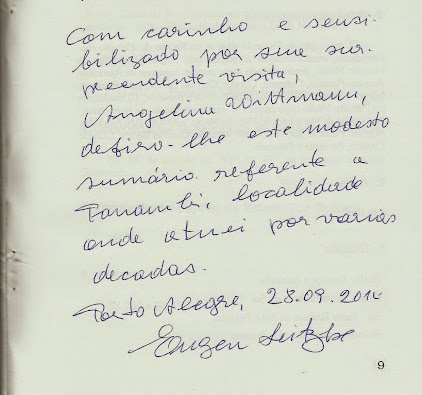 Com carinho e sensi-
bilizado por sua sur-
preendente visita,
Angelina Wittmann,
defiro-lhe este modesto
sumário referente a
Panambi, localidade
onde atuei por varias
decadas.
Porto Alegre, 28.09.2010
Eugen
9